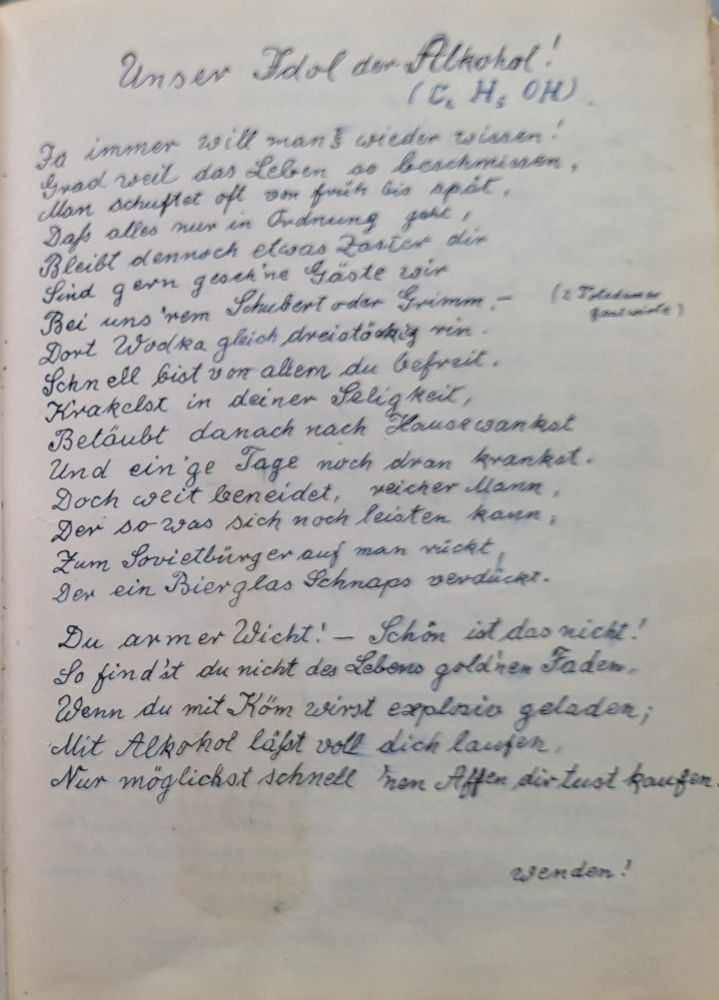 Unser Idol der Alkohol!
(C₂ H₅ OH).
Ja immer will man's wieder wissen!
Grad weil das Leben so beschmissen,
Man schuftet oft von früh bis spät,
Daß alles nur in Ordnung geht,
Bleibt dennoch etwas Zaster dir
Sind gern geseh'ne Gäste wir
Bei uns'rem Schubert oder Grimm. – (2 Potsdamer
Gastwirte)
Dort Wodka gleich dreistöckig rin.
Schnell bist von allem du befreit.
Krakelst in deiner Seligkeit,
Betäubt danach nach Hause wankst
Und ein'ge Tage noch dran krankst.
Doch weit beneidet, reicher Mann,
Der so was sich noch leisten kann,
Zum Sovietbürger auf man rückt,
Der ein Bierglas Schnaps verdückt.
Du armer Wicht! – Schön ist das nicht!
So find'st du nicht des Lebens gold'nen Faden.
Wenn du mit Köm wirst explosiv geladen;
Mit Alkohol läßt voll dich laufen,
Nur möglichst schnell 'nen Affen dir tust kaufen.
wenden!